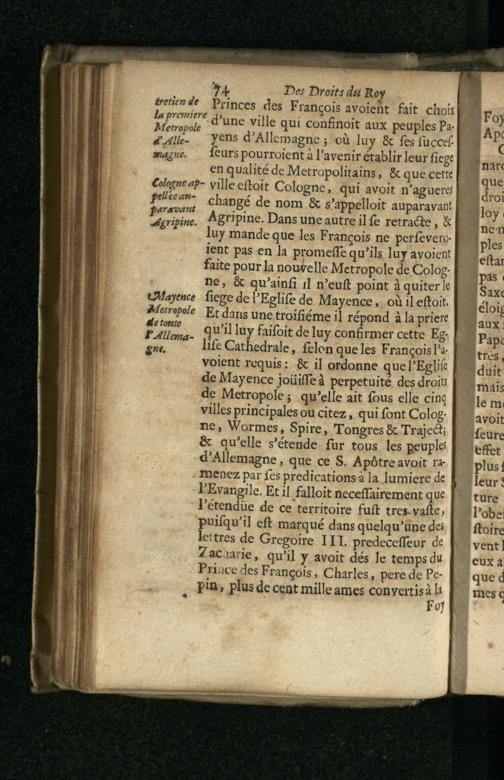 74 Des Droits du Roy
tretien de
la premiere
Metropole
d'Alle-
magne.
Cologne ap-
pellée au-
paravant
Agripine.
Mayence
Metropole
de toute
l'Allema-
gne.
Princes des François avoient fait choix
d'une ville qui confinoit aux peuples Pa-
yens d'Allemagne ; où luy & ses succes-
seurs pourroient à l'avenir établir leur siege
en qualité de Metropolitains, & que cette
ville estoit Cologne, qui avoit n'agueres
changé de nom & s'appelloit auparavant
Agripine. Dans une autre il se retracte, &
luy mande que les François ne persevero-
ient pas en la promesse qu'ils luy avoient
faite pour la nouvelle Metropole de Colog-
ne, & qu'ainsi il n'eust point à quiter le
siege de l'Eglise de Mayence, où il estoit.
Et dans une troisiéme il répond à la priere
qu'il luy faisoit de luy confirmer cette Eg-
lise Cathedrale, selon que les François l'a-
voient requis : & il ordonne que l'Eglise
de Mayence joüisse à perpetuité des droits
de Metropole ; qu'elle ait sous elle cinq
villes principales ou citez, qui sont Colog-
ne, Wormes, Spire, Tongres & Traject;
& qu'elle s'étende sur tous les peuples
d'Allemagne, que ce S. Apôtre avoit ra-
menez par ses predications à la lumiere de
l'Evangile. Et il falloit necessairement que
l'étendüe de ce territoire fust tres-vaste,
puisqu'il est marqué dans quelqu'une des
lettres de Gregoire III. predecesseur de
Zacharie, qu'il y avoit dés le temps du
Prince des François, Charles, pere de Pe-
pin, plus de cent mille ames convertis à la
Foy
Foy
Apo
narc
que
droi
loy
ne-n
ples
estan
pas
Saxo
éloig
aux
Pape
tres,
duit
mais
le me
avoit
seure
effet
plus
leur
ture
l'obe
stoire
vent
eux a
que d
mes q